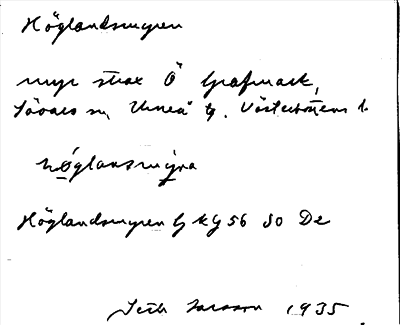 Höglandsmyren
myr strax Ö Grafmark,
Sävars sn, Umeå tg. Västerbottens l.
höglansmýra
Höglandsmyren Gkg 56 SO De
Larsson 1935.